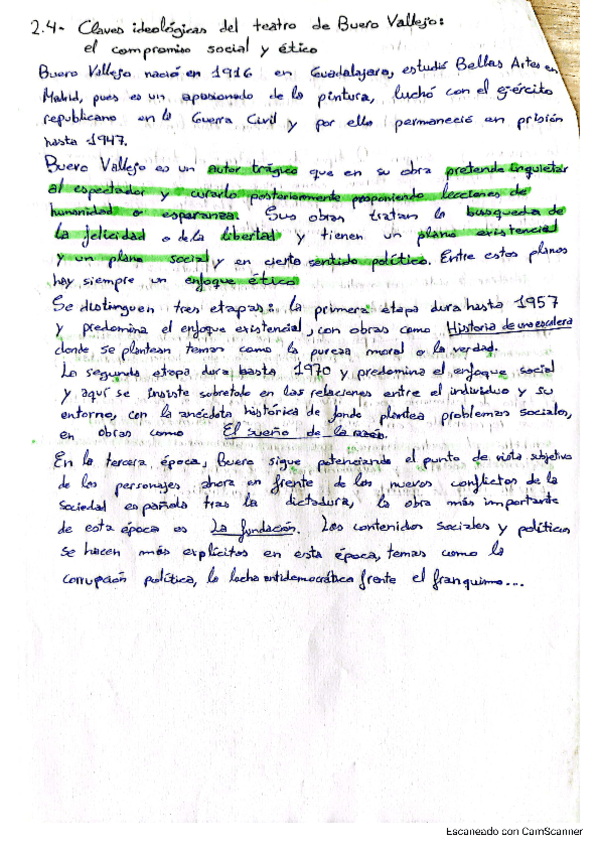 2.4- Claves ideológicas del teatro de Buero Vallejo:
el compromiso social y ético
Buero Vallejo nació en 1916 en Guadalajara, estudió Bellas Artes en
Madrid, pues es un apasionado de la pintura, luchó con el ejército
republicano en la Guerra Civil y por ello permaneció en prisión
hasta 1947.
Buero Vallejo es un autor trágico que en su obra pretende inquietar
al espectador y curarlo posteriormente proponiendo lecciones de
humanidad o esperanza. Sus obras tratan la busqueda de
la felicidad o de la libertad y tienen un plano existencial
y un plano social y en cierto sentido político. Entre estos planos
hay siempre un enfoque ético
Se distinguen tres etapas: la primera etapa dura hasta 1957
y predomina el enfoque existencial, con obras como Historia de una escalera
donde se plantean temas como la pureza moral o la verdad.
La segunda etapa dura hasta 1970 y predomina el enfoque social
y aquí se insiste sobretodo en las relaciones entre el individuo y su
entorno, con la anécdota histórica de fondo plantea problemas sociales,
en obras como El sueño de la razón.
En la tercera época, Buero sigue potenciando el punto de vista subjetivo
de los personajes ahora en frente de los nuevos conflictos de la
Sociedad española tras la dictadura, la obra más importante
de esta época es La fundación. Los contenidos sociales y políticos
se hacen más explícitos en esta época, temas como la
corrupción política, la lucha antidemocrática frente el franquismo...
Escaneado con CamScanner